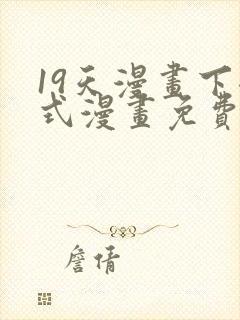 19天漫畫下
式漫畫免費
詹倩